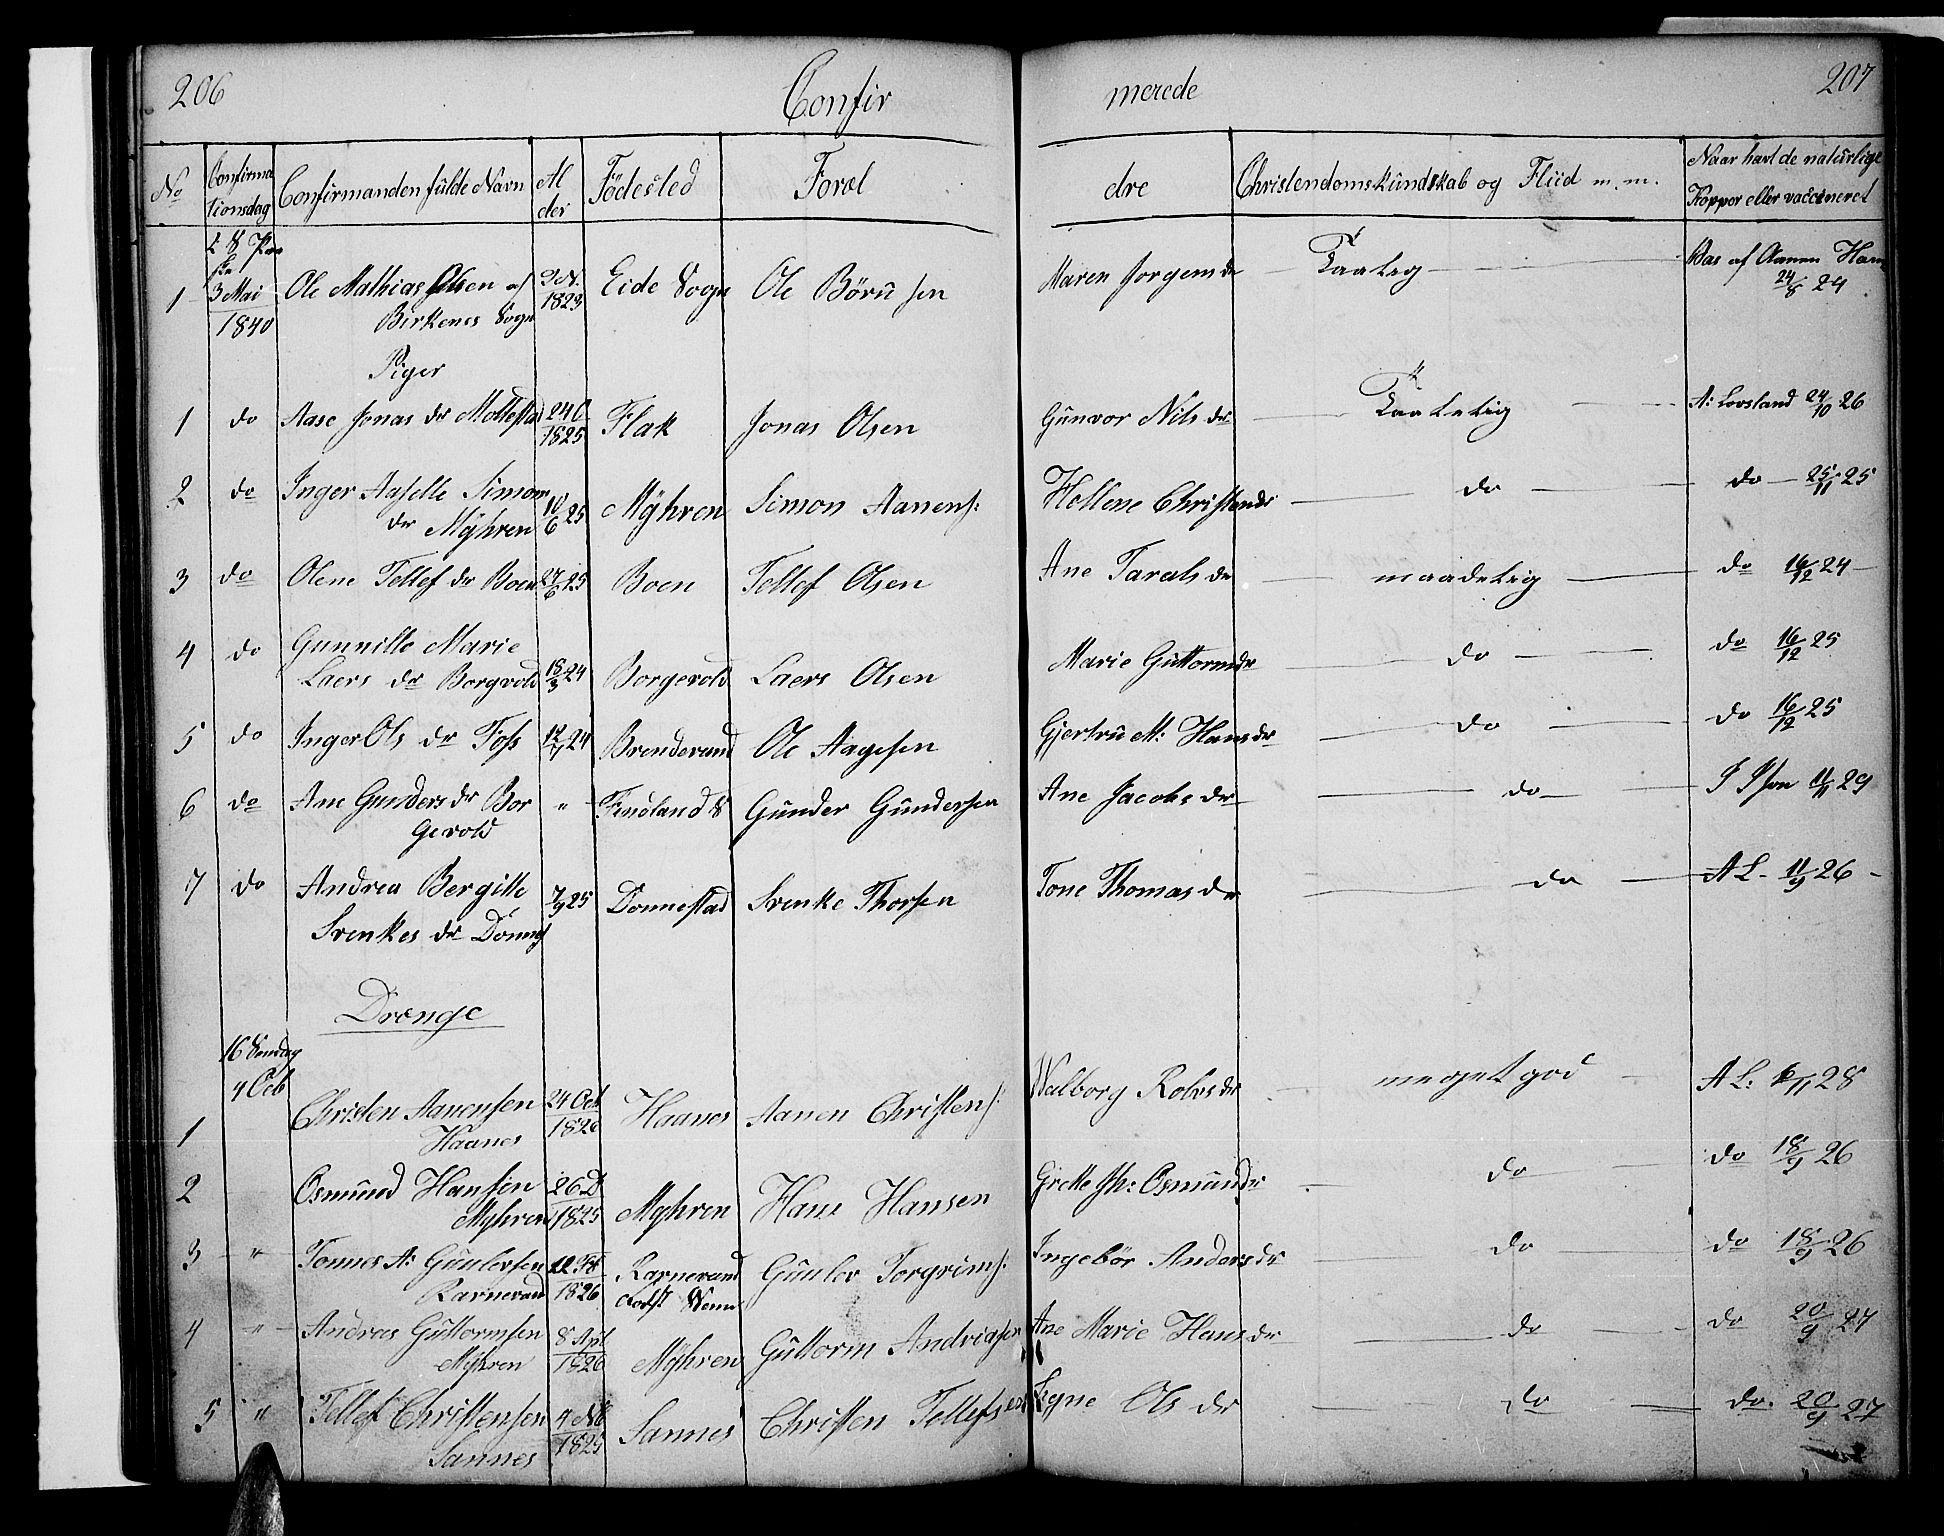 206 Confir merede 207
No Confirma tionsdag Confirmanden fulde Navn Al der Födested Foræl dre Christendomskundskab og Fliid m. m. Naar havt de naturlige Kopper eller vaccineret
3 Mai 1840
1 Ole Mathias Olsen af Birkenes Sogn 1823 Eide Sogn Ole Börusen Maren Jorgensdr Taalig Vas af Aanen 24/8 24
Piger
1 do Aase Jonas dr 24 O 1825 Flak Jonas Olsen Gunvor Nils dr Taalelig A: Lovsland 24/10 26
2 do Inger Aaselle Simons dr Myhren 10/6 25 Myhren Simon Aanens: Hellene Christensdr do do 25/11 25
3 do Olene Tellef dr Boen 27/6 25 Boen Tellef Olsen Ane Tarals dr maadelig do 16/12 24
4 do Gunnille Marie Laers dr Borgvold 18/3 24 Borgevold Laers Olsen Marie Guttormdr do do 16/12 25
5 do Inger Ols dr Foss 24 Brenderand Ole Aagesen Gjertru M: Hansdr do do 16/12 25
6 do Ane Gunders dr Bor gevold " Findland S Gunder Gundersen Ane Jacobs dr do 29
7 do Andrea Bergitte Svenkes dr Donnes 7/9 25 Donnestad Svenke Thorsen Tone Thomas dr do A L 11/9 26
Drenge
16 Sondag 4 Oct
1 Christen Aanensen Haanes 24 Oct 1826 Haanes Aanen Christens: Walborg Robrs dr meget god A L: 28
2 Osmund Hansen Myhren 26 D 1825 Myhren Hans Hansen Grette Osmundr do do 18/9 26
3 " Tonnes A: Gunlevsen Rarnevand 12 Fb 1826 Rarnevand Gunlev Torgrims: Ingebör Anders dr do do 18/9 26
4 " Andreas Guttormsen Myhren 8 Apl 1826 Myhren Guttorm Andreasen Ane Marie Hans dr do do 20/9 27
5 " Tellef Christensen Sannes 4 Nb 1825 Sannes Christen Tellefsen Segne Ols dr do do. 20/9 27